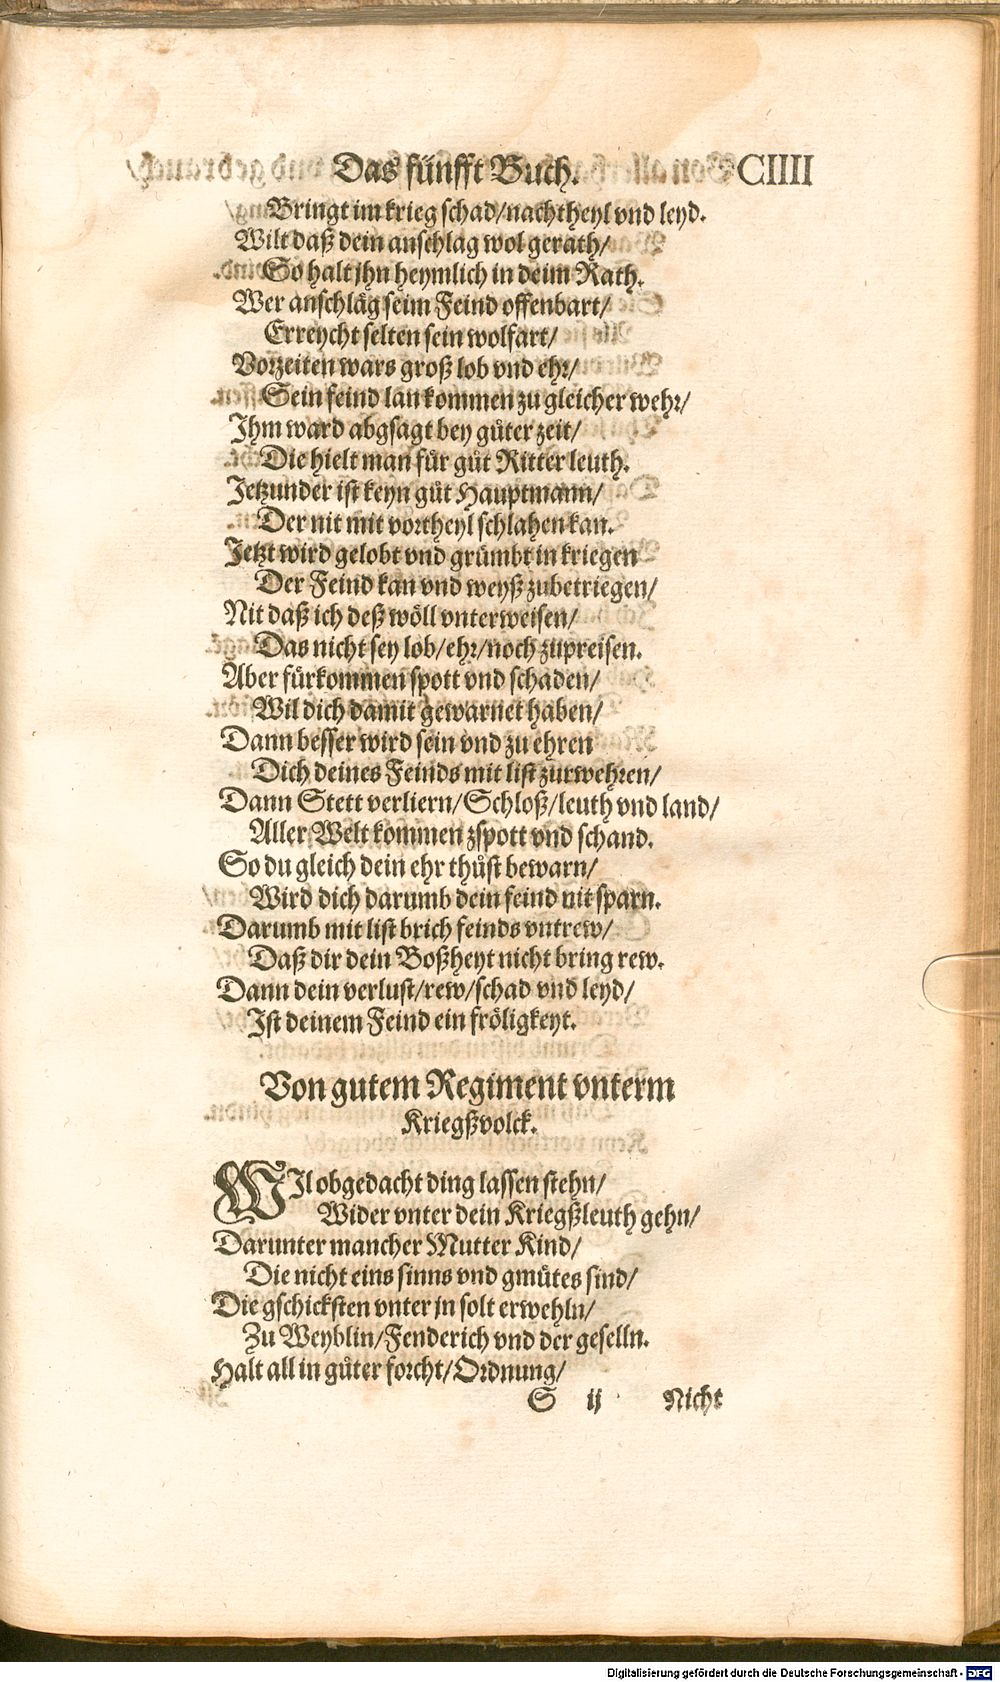 Das fünfft Buch. CIIII
Bringt im krieg schad/nachtheyl vnd leyd.
Wilt daß dein anschlag wol gerath/
So halt jhn heymlich in deim Rath.
Wer anschläg seim Feind offenbart/
Erreycht selten sein wolfart/
Vorzeiten wars groß lob vnd ehr/
Sein feind lan kommen zu gleicher wehr/
Ihm ward abgsagt bey gůter zeit/
Die hielt man für gůt Ritter leuth.
Jetzunder ist keyn gůt Hauptmann/
Der nit mit vortheyl schlahen kan.
Jetzt wird gelobt vnd grümbt in kriegen
Der Feind kan vnd weyß zubetriegen/
Nit daß ich deß wöll vnterweisen/
Das nicht sey lob/ehr/noch zupreisen.
Aber fürkommen spott vnd schaden/
Wil dich damit gewarnet haben/
Dann besser wird sein vnd zu ehren
Dich deines Feinds mit list zurwehren/
Dann Stett verliern/Schloß/leuth vnd land/
Aller Welt kommen zspott vnd schand.
So du gleich dein ehr thůst bewarn/
Wird dich darumb dein feind nit sparn.
Darumb mit list brich feinds vntrew/
Daß dir dein Boßheyt nicht bring rew.
Dann dein verlust/rew/schad vnd leyd/
Ist deinem Feind ein fröligkeyt.
Von gutem Regiment vnterm
Kriegßvolck.
WIl obgedacht ding lassen stehn/
Wider vnter dein Kriegßleuth gehn/
Darunter mancher Mutter Kind/
Die nicht eins sinns vnd gmütes sind/
Die gschicksten vnter jn solt erwehln/
Zu Weyblin/Fenderich vnd der geselln.
Halt all in gůter forcht/Ordnung/
S ij Nicht
Digitalisierung gefördert durch die Deutsche Forschungsgemeinschaft - DFG